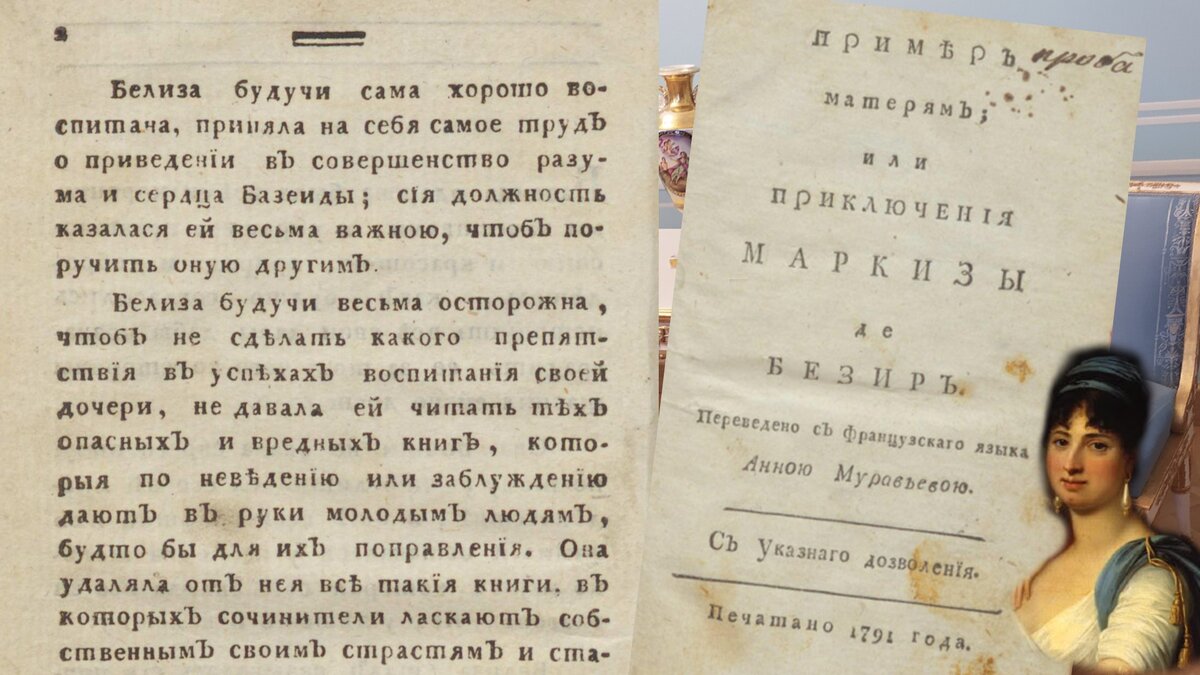 2
Белиза будучи сама хорошо во-
спитача, приняла на себя самое трудъ
о приведенїи въ совершенство разу-
ма и сердца Базеиды; сїя должность
казалася ей весьма важною, чтобъ по-
ручить оную другимъ.
Белиза будучи весьма осторожна,
чтобъ не сдѣлать какого препят-
ствїя въ успѣхахъ воспитанїя своей
дочери, не давала ей читать тѣхъ
опасныхъ и вредныхъ книгъ, кото-
рыя по невѣденїю или заблужденїю
даютъ въ руки молодымъ людямъ,
будто бы для ихъ поправленїя. Она
удаляла отъ нея всѣ такїя книги, въ
которыхъ сочинители ласкаютъ соб-
ственнымъ своимъ страстямъ и ста-
ПРИМѢРЪ проба
матерямъ;
или
ПРИКЛЮЧЕНІЯ
МАРКИЗЫ
де
БЕЗИРЪ.
Переведено съ французскаго языка
Анною Муравьевою.
Съ Указнаго дозволенїя.
Печатано 1791 года.